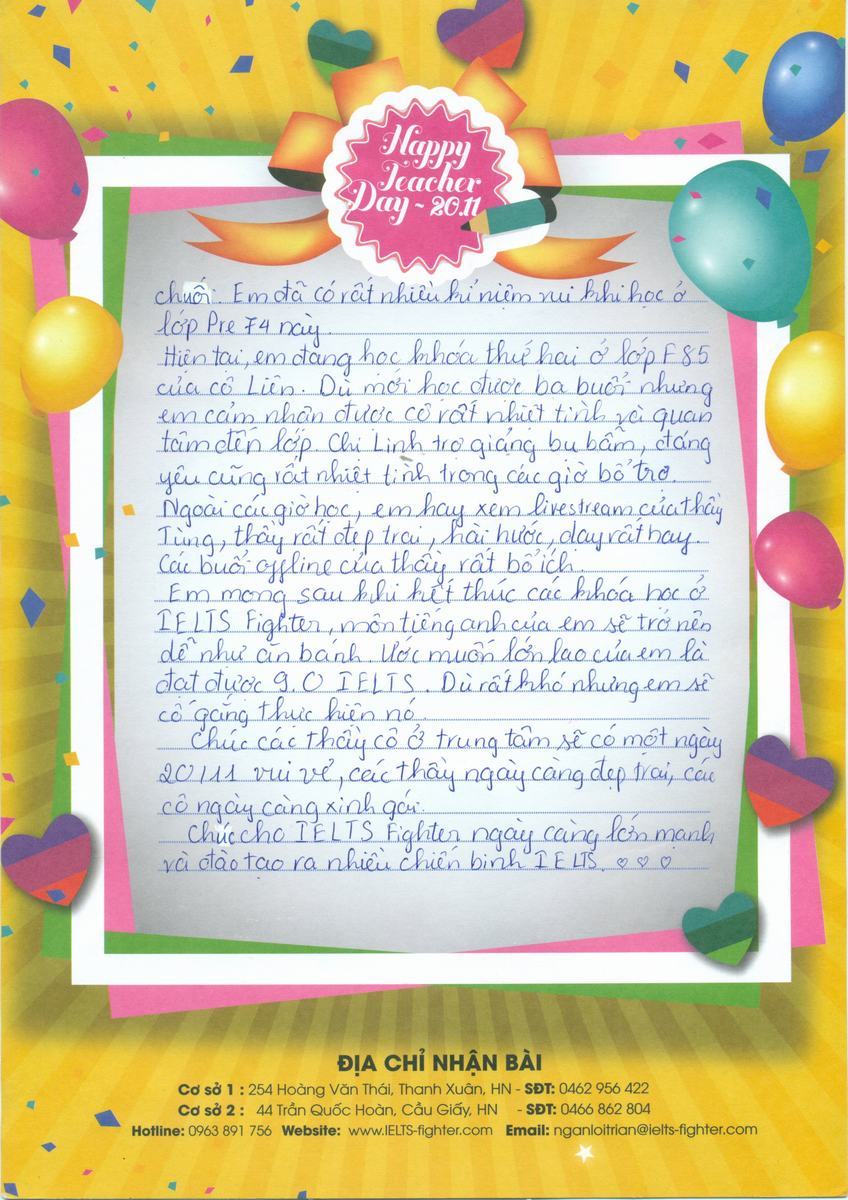 Happy
Teacher
Day ~ 20.11
chuối. Em đã có rất nhiều kỉ niệm vui khi học ở
lớp Pre 74 này.
Hiện tại, em đang học khóa thứ hai ở lớp F85
của cô Liên. Dù mới học được ba buổi nhưng
em cảm nhận được cô rất nhiệt tình và quan
tâm đến lớp. Chị Linh trợ giảng bụ bẫm, đáng
yêu cũng rất nhiệt tình trong các giờ bổ trợ.
Ngoài các giờ học, em hay xem livestream của thầy
Tùng, thầy rất đẹp trai, hài hước, dạy rất hay.
Các buổi offline của thầy rất bổ ích.
Em mong sau khi kết thúc các khóa học ở
IELTS Fighter, môn tiếng anh của em sẽ trở nên
dễ như ăn bánh. Ước muốn lớn lao của em là
đạt được 9.0 IELTS. Dù rất khó nhưng em sẽ
cố gắng thực hiện nó.
Chúc các thầy cô ở trung tâm sẽ có một ngày
20/11 vui vẻ, các thầy ngày càng đẹp trai, các
cô ngày càng xinh gái.
Chúc cho IELTS Fighter ngày càng lớn mạnh
và đào tạo ra nhiều chiến binh IELTS. ♡ ♡ ♡
ĐỊA CHỈ NHẬN BÀI
Cơ sở 1 : 254 Hoàng Văn Thái, Thanh Xuân, HN - SĐT: 0462 956 422
Cơ sở 2 : 44 Trần Quốc Hoàn, Cầu Giấy, HN - SĐT: 0466 862 804
Hotline: 0963 891 756 Website: www.IELTS-fighter.com Email: nganloitrian@ielts-fighter.com